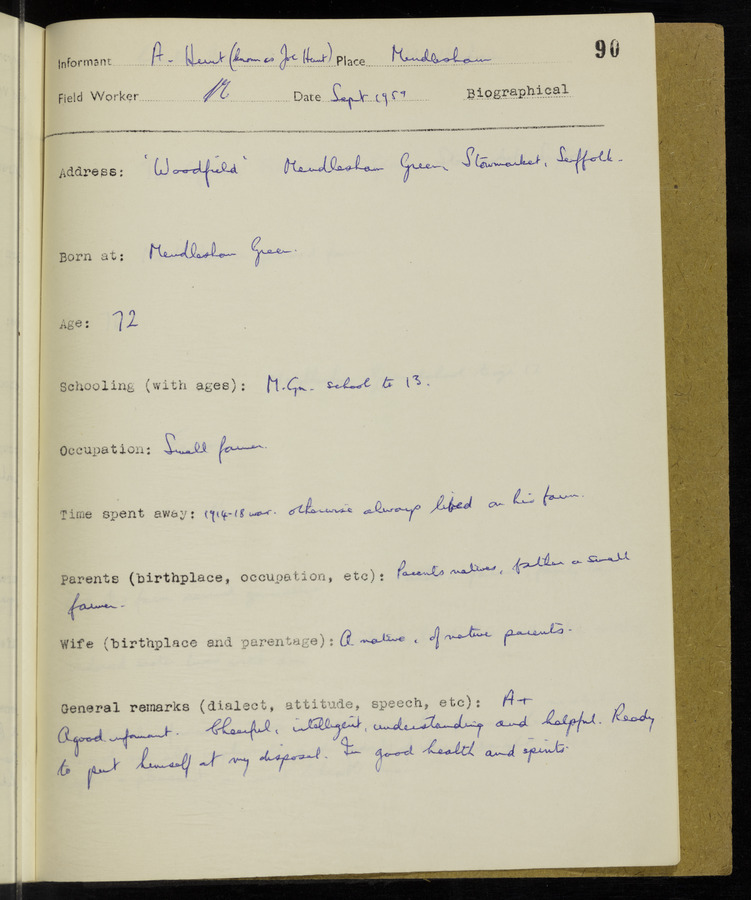 90
Informant A. Hunt (known as Joe Hunt) Place Mendlesham
Field Worker Date Sept 1957 Biographical
Address: 'Woodfield' Mendlesham Green, Stowmarket, Suffolk.
Born at: Mendlesham Green.
Age: 72
Schooling (with ages): M. Gn. school to 13.
Occupation: Small farmer.
Time spent away: 1914-18 war. otherwise always lived on his farm.
Parents (birthplace, occupation, etc): Parents natives, father a small
farmer.
Wife (birthplace and parentage): A native, of native parents.
General remarks (dialect, attitude, speech, etc): A+
A good informant. Cheerful, intelligent, understanding and helpful. Ready
to put himself at my disposal. In good health and spirits.